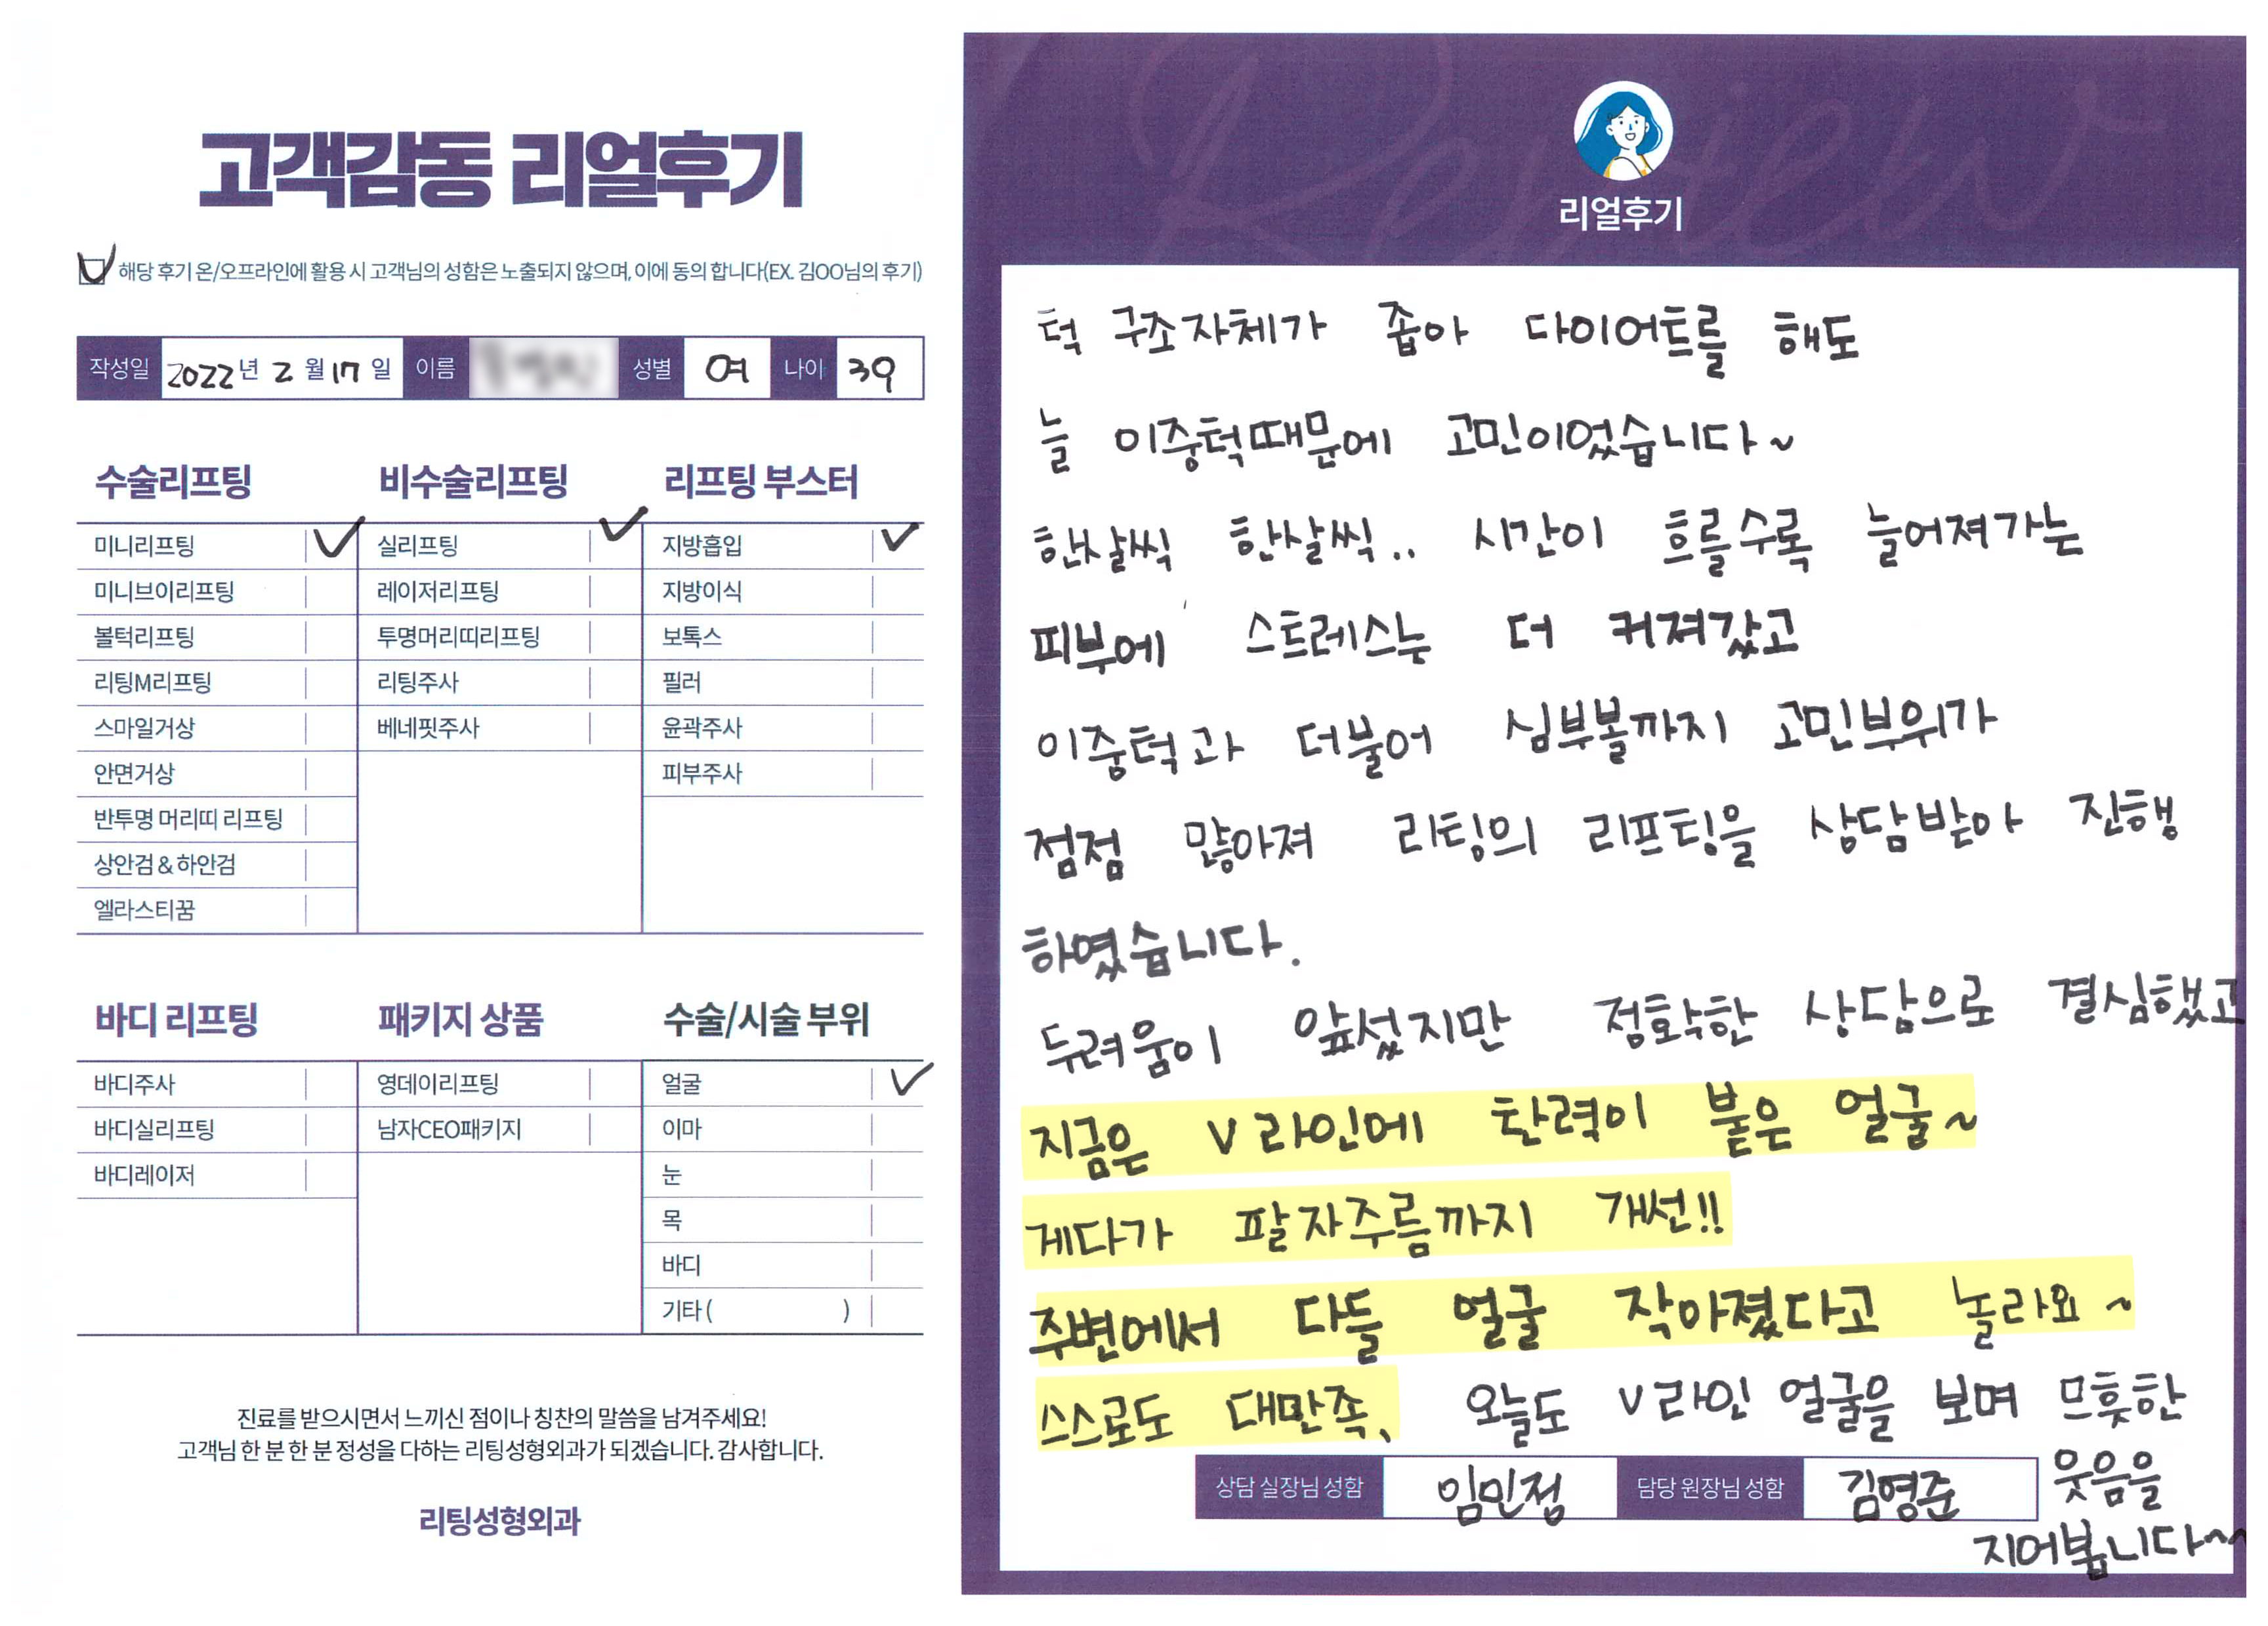 고객감동 리얼후기
해당 후기 온/오프라인에 활용 시 고객님의 성함은 노출되지 않으며, 이에 동의 합니다(EX. 김OO님의 후기)
작성일 2022년 2월 17일 이름 성별 여 나이 39
수술리프팅
미니리프팅
미니브이리프팅
볼턱리프팅
리팅M리프팅
스마일거상
안면거상
반투명 머리띠 리프팅
상안검 & 하안검
엘라스티꿈
비수술리프팅
실리프팅
레이저리프팅
투명머리띠리프팅
리팅주사
베네핏주사
리프팅 부스터
지방흡입
지방이식
보톡스
필러
윤곽주사
피부주사
바디 리프팅
바디주사
바디실리프팅
바디레이저
패키지 상품
영데이리프팅
남자CEO패키지
수술/시술 부위
얼굴
이마
눈
목
바디
기타 ( )
진료를 받으시면서 느끼신 점이나 칭찬의 말씀을 남겨주세요!
고객님 한 분 한 분 정성을 다하는 리팅성형외과가 되겠습니다. 감사합니다.
리팅성형외과
Review
리얼후기
턱 구조자체가 좁아 다이어트를 해도
늘 이중턱때문에 고민이었습니다~
한살씩 한살씩.. 시간이 흐를수록 늘어져가는
피부에 스트레스는 더 커져갔고
이중턱과 더불어 심부볼까지 고민부위가
점점 많아져 리팅의 리프팅을 상담받아 진행
하였습니다.
두려움이 앞섰지만 정확한 상담으로 결심했고
지금은 V라인에 탄력이 붙은 얼굴~
게다가 팔자주름까지 개선!!
주변에서 다들 얼굴 작아졌다고 놀라요~
스스로도 대만족, 오늘도 V라인 얼굴을 보며 므흣한
웃음을
지어봅니다~~
상담 실장님 성함 임민정 담당 원장님 성함 김영준